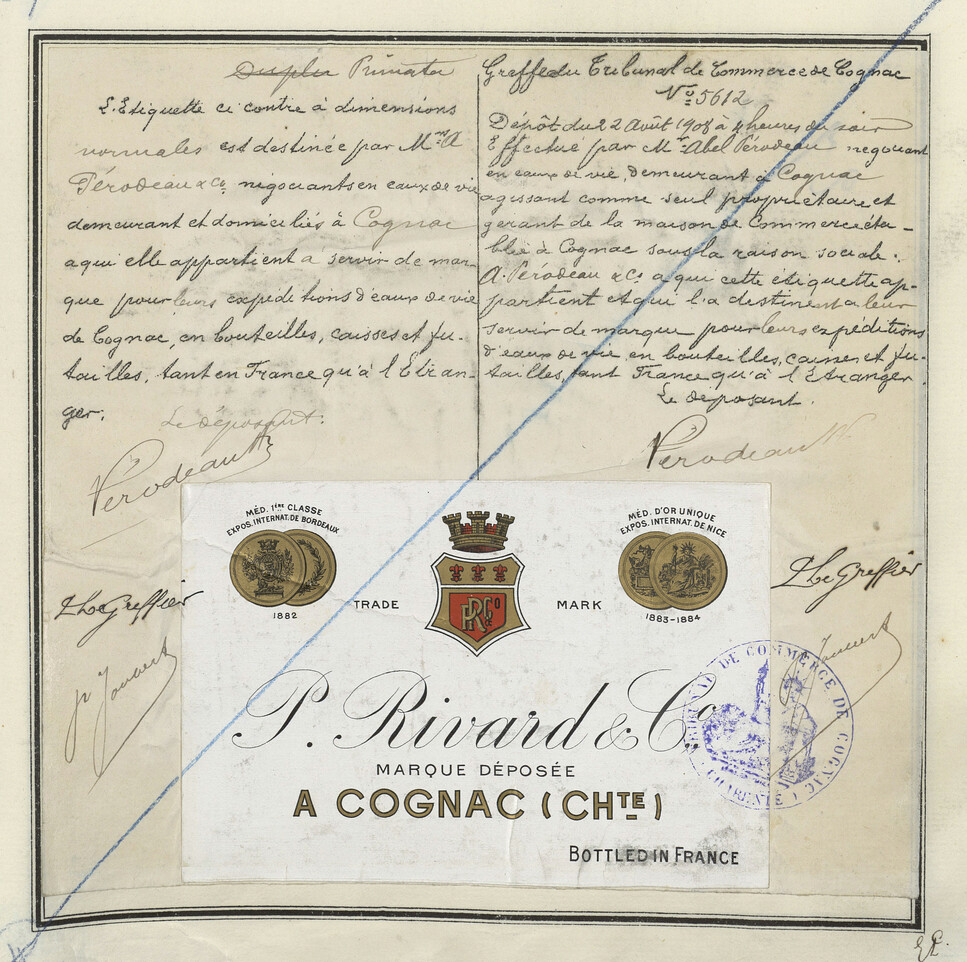 Duplu Primata
L'Etiquette ci contre à dimensions
normales est destinée par Mrs A
Pérodeau & Co négociants en eaux de vie
demeurant et domiciliés à Cognac
a qui elle appartient à servir de mar-
que pour leurs expéditions d'eaux de vie
de Cognac, en bouteilles, caisses et fu-
tailles, tant en France qu'à l'Etran-
ger.
Le déposant.
Pérodeau A
Greffe du Tribunal de Commerce de Cognac
No 5612
Dépôt du 22 Août 1908 à 4 heures du soir
Effectué par Mr Abel Pérodeau négociant
en eaux de vie, demeurant à Cognac
agissant comme seul propriétaire et
gérant de la maison de Commerce éta-
blie à Cognac sous la raison sociale:
A. Pérodeau & Co a qui cette étiquette ap-
partient et qui l'a destinent a leur
servir de marque pour leurs expéditions
d'eaux de vie, en bouteilles, caisses et fu-
tailles, tant France qu'à l'Etranger.
Le déposant.
Pérodeau A
Le Greffier
Le Greffier
MÉD. 1ÈRE CLASSE
EXPOS. INTERNAT. DE BORDEAUX
1882
TRADE
PR & Co
MARK
MÉD. D'OR UNIQUE
EXPOS. INTERNAT. DE NICE
1883-1884
P. Rivard & Co
MARQUE DÉPOSÉE
A COGNAC (CHTE)
BOTTLED IN FRANCE
TRIBUNAL DE COMMERCE DE COGNAC
(CHARENTE)